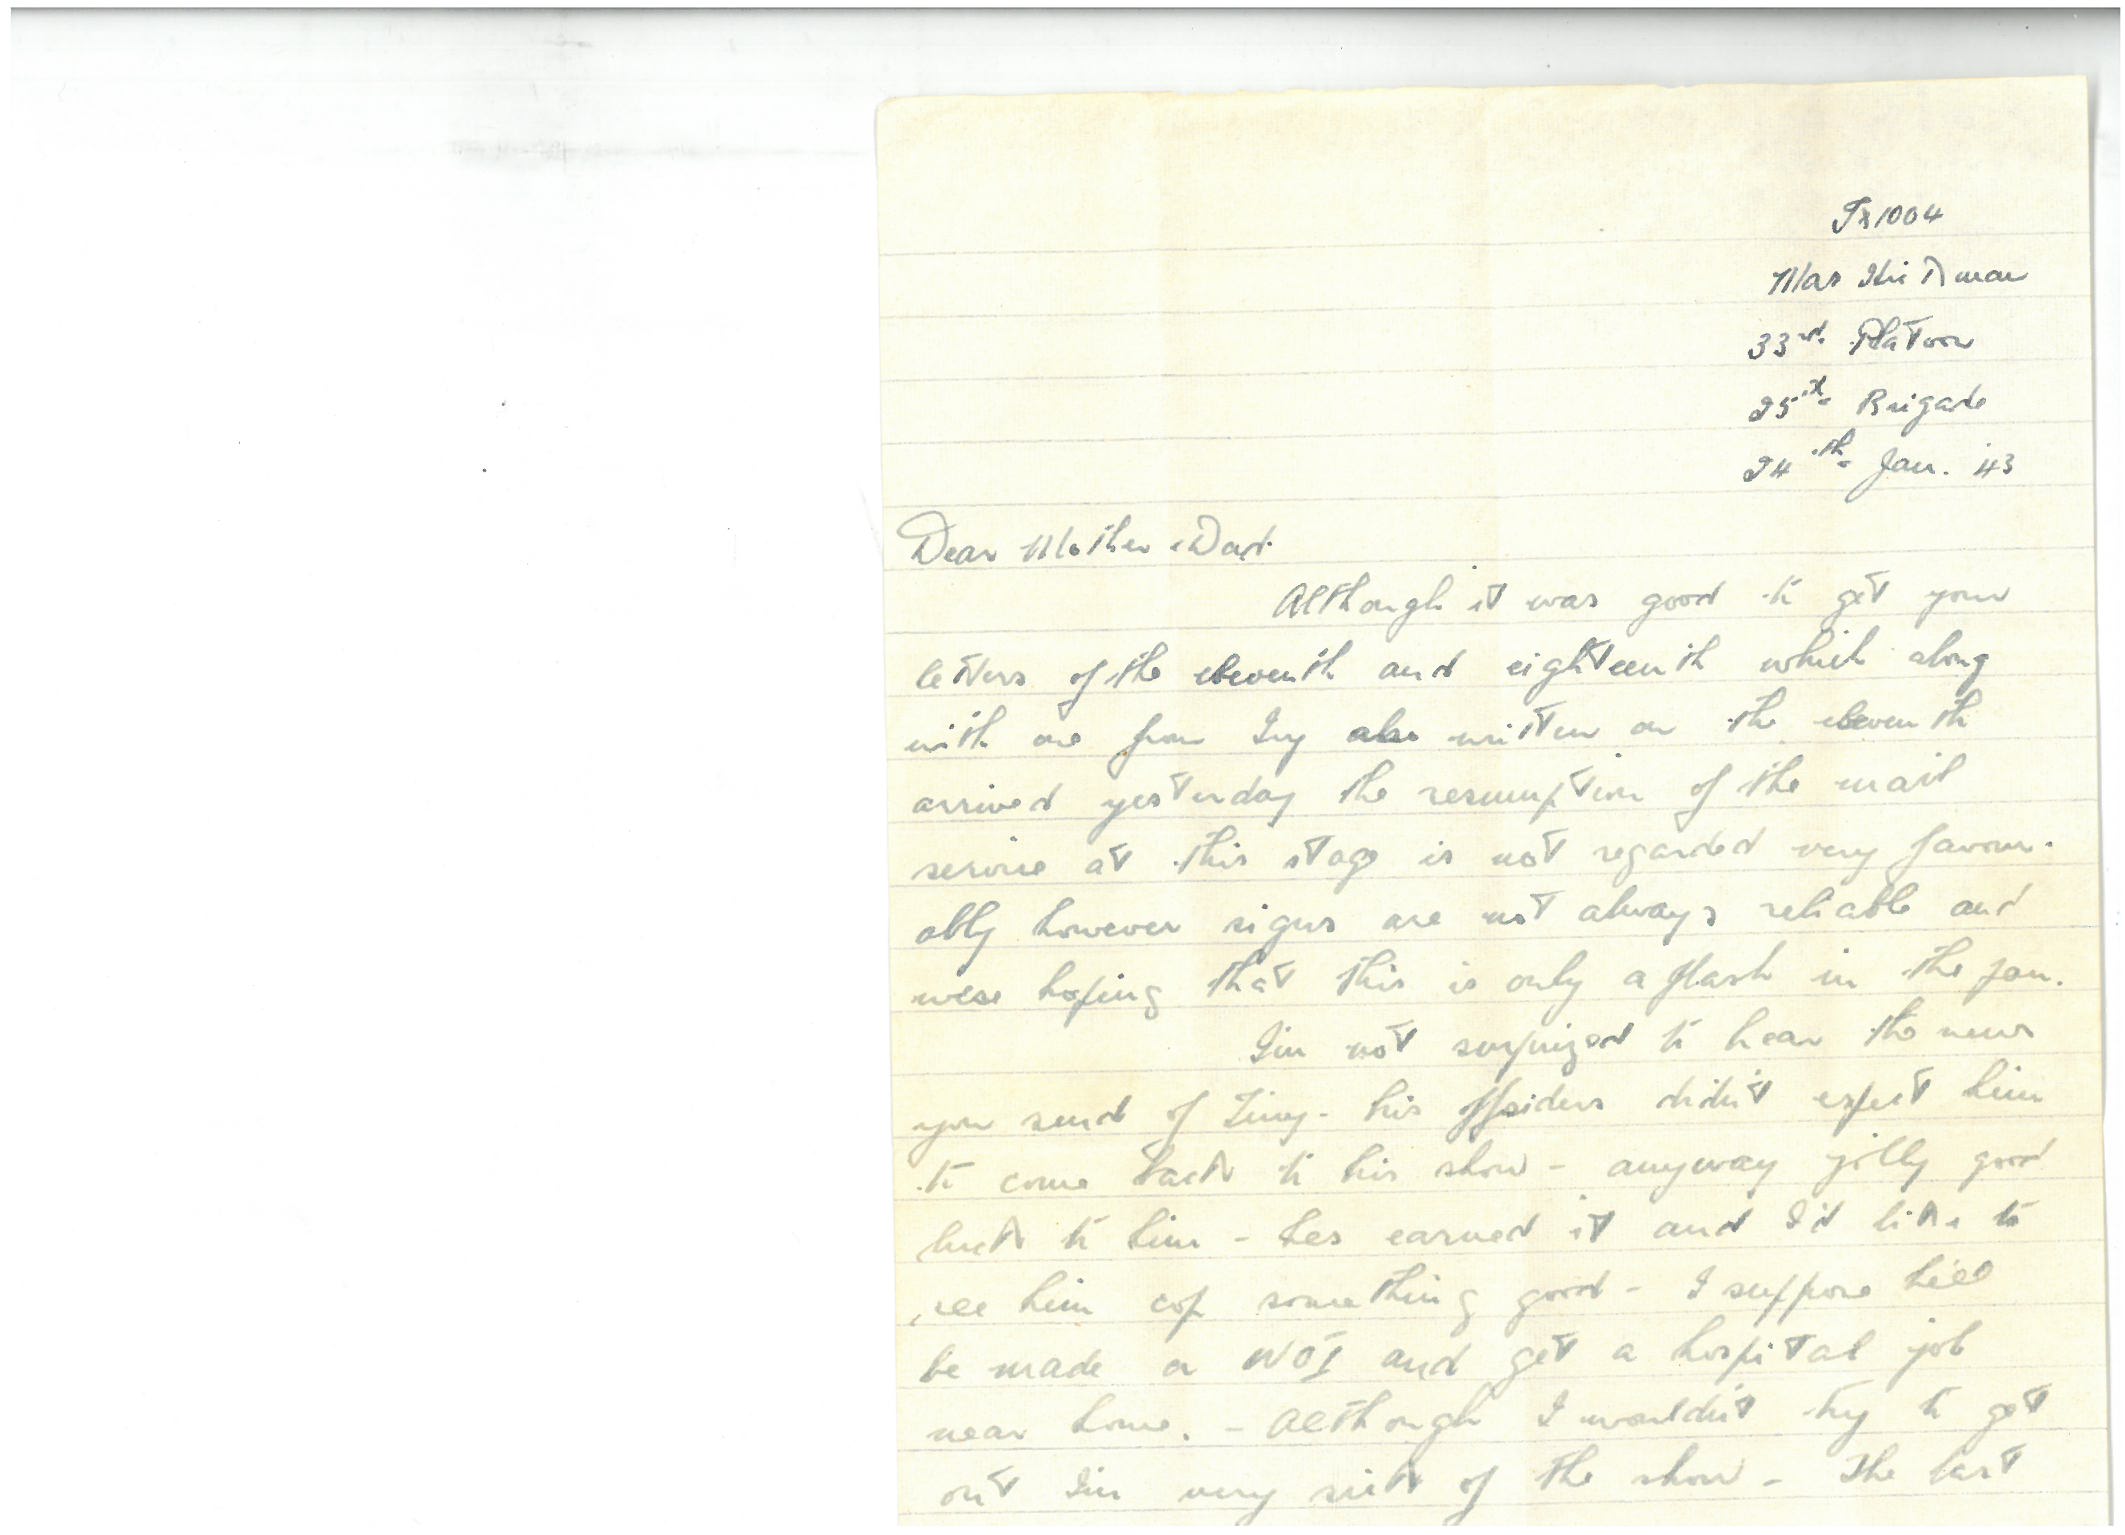 Tx1004
Max Hickman
33rd. Platoon
25th Brigade
24th Jan. 43
Dear Mother & Dad.
Although it was good to get your
letters of the eleventh and eighteenth which along
with one from Ivy also written on the eleventh
arrived yesterday the resumption of the mail
service at this stage is not regarded very favour-
ably however signs are not always reliable and
were hoping that this is only a flash in the pan.
I'm not surprized to hear the news
you send of Tiny - his offsiders didn't expect him
to come back to his show - anyway jolly good
luck to him - hes earned it and I'd like to
see him cop something good - I suppose he'll
be made a WO1 and get a hospital job
near home. - Although I wouldn't try to get
out I'm very sick of the show - The last